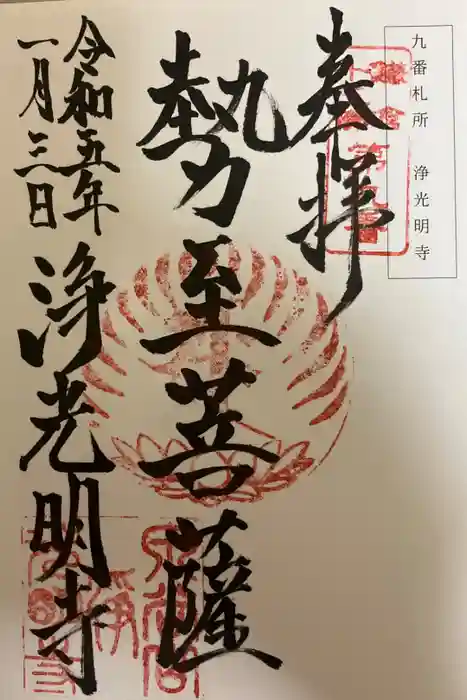 九番札所 浄光明寺
奉拝
勢至菩薩
令和五年
一月三日
浄光明寺